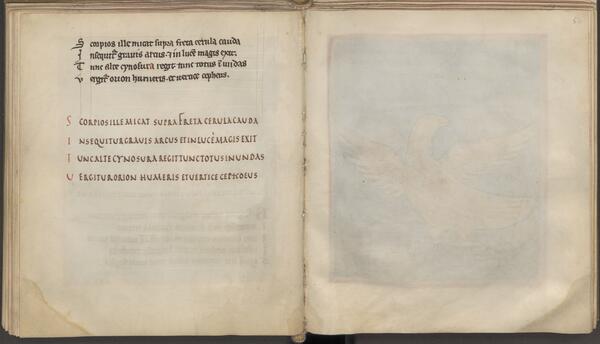 Scorpios ille micat supra freta cerula cauda
Insequit᷑ grauis arcus. ⁊ in lucē magis exit.
Tunc alte cynosura regit. tunc totus in undas
Vergit᷑ orion humeris. et uertice cepheus.
SCORPIOS ILLE MICAT SUPRA FRETA CERULA CAUDA
INSEQUITUR GRAUIS ARCUS ET IN LUCĒ MAGIS EXIT
TUNC ALTE CYNOSURA REGIT TUNC TOTUS IN UNDAS
UERGITUR ORION HUMERIS ET UERTICE